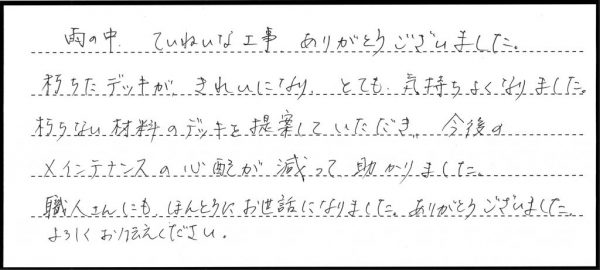 雨の中 ていねいな工事 ありがとうございました。
朽ちたデッキが、きれいになり、とても気持ちよくなりました。
朽ちない材料のデッキを提案していただき、今後の
メインテナンスの心配が減って助かりました。
職人さんにも ほんとうにお世話になりました。ありがとうございました。
よろしくお伝えください。